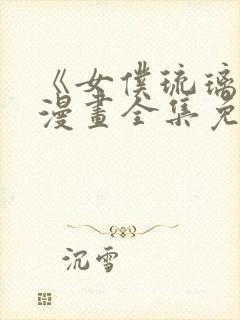 《女僕琉璃
漫畫全集免
沉雪